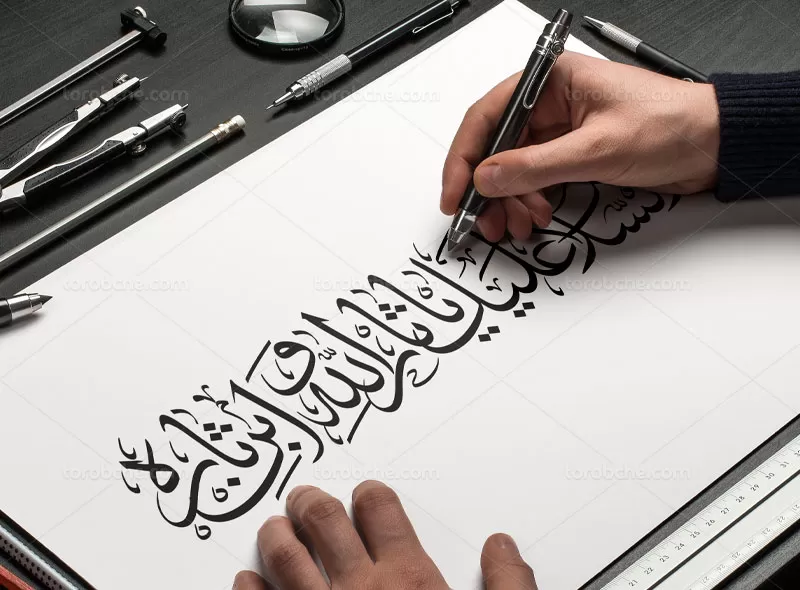 السلام علیک یا ثار الله و ابن ثاره
torobche.com torobche.com torobche.com
torobche.com torobche.com torobche.com
torobche.com torobche.com torobche.com
21 22 23 24 25 26 27 28 29 30 31